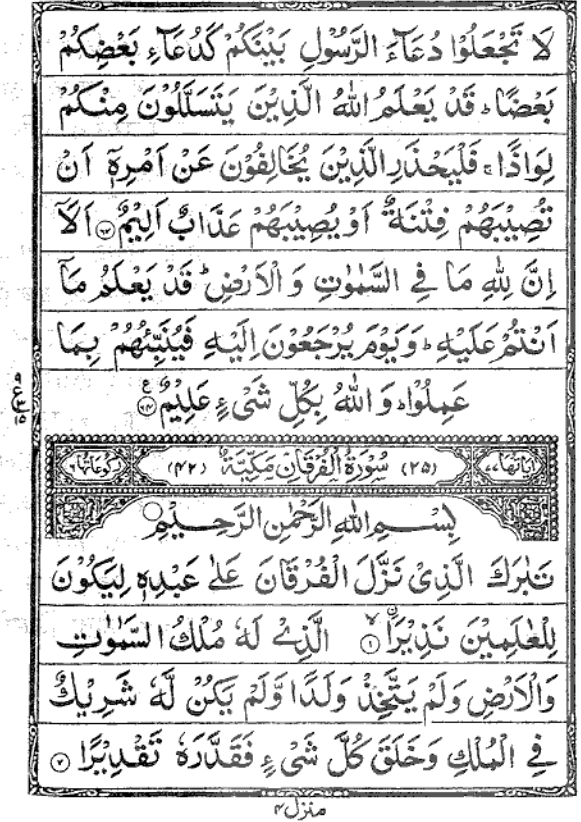 لَا تَجْعَلُوْا دُعَآءَ الرَّسُوْلِ بَيْنَكُمْ كَدُعَآءِ بَعْضِكُمْ
بَعْضًا ؕ قَدْ يَعْلَمُ اللّٰهُ الَّذِيْنَ يَتَسَلَّلُوْنَ مِنْكُمْ
لِوَاذًا ۚ فَلْيَحْذَرِ الَّذِيْنَ يُخَالِفُوْنَ عَنْ اَمْرِهٖۤ اَنْ
تُصِيْبَهُمْ فِتْنَةٌ اَوْ يُصِيْبَهُمْ عَذَابٌ اَلِيْمٌ ﴿۶۳﴾ اَلَاۤ
اِنَّ لِلّٰهِ مَا فِي السَّمٰوٰتِ وَ الْاَرْضِ ؕ قَدْ يَعْلَمُ مَاۤ
اَنْتُمْ عَلَيْهِ ؕ وَيَوْمَ يُرْجَعُوْنَ اِلَيْهِ فَيُنَبِّئُهُمْ بِمَا
عَمِلُوْا ؕ وَ اللّٰهُ بِكُلِّ شَيْءٍ عَلِيْمٌ ﴿۶۴﴾ ع
اٰيَاتُهَا ٧٧ (٢٥) سُوْرَةُ الْفُرْقَانِ مَكِّيَّةٌ (٤٢) رُكُوْعَاتُهَا ٦
بِسْمِ اللّٰهِ الرَّحْمٰنِ الرَّحِيْمِ
تَبٰرَكَ الَّذِيْ نَزَّلَ الْفُرْقَانَ عَلٰى عَبْدِهٖ لِيَكُوْنَ
لِلْعٰلَمِيْنَ نَذِيْرًا ﴿۱﴾ۙ الَّذِيْ لَهٗ مُلْكُ السَّمٰوٰتِ
وَالْاَرْضِ وَلَمْ يَتَّخِذْ وَلَدًا وَّلَمْ يَكُنْ لَّهٗ شَرِيْكٌ
فِي الْمُلْكِ وَخَلَقَ كُلَّ شَيْءٍ فَقَدَّرَهٗ تَقْدِيْرًا ﴿۲﴾
منزل ۴